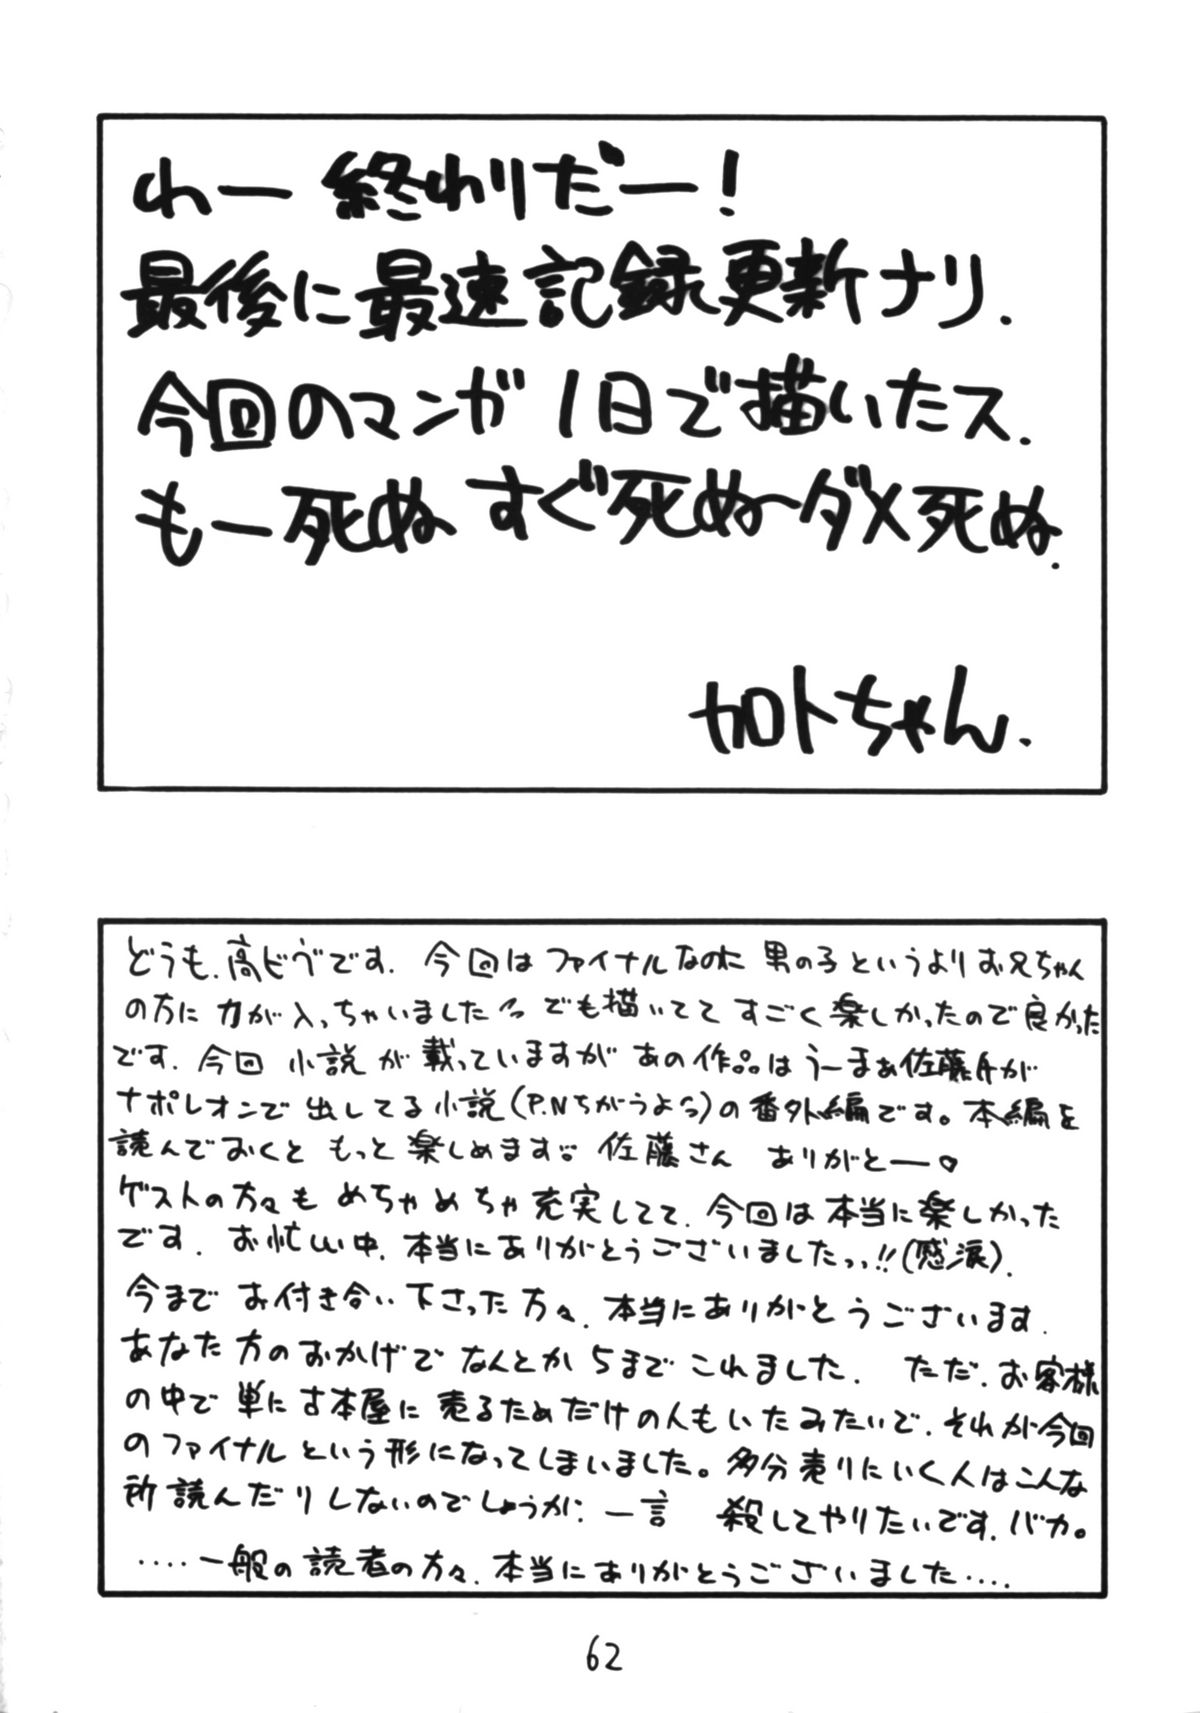 わー 終わりだー!
最後に最速記録更新ナリ.
今回のマンガ1日で描いたス.
もー死ぬ すぐ死ぬ〜ダメ死ぬ.
加ロトちゃん.
どうも.高ビヴです. 今回はファイナルなのに 男の子というよりお兄ちゃん
の方に力が入っちゃいました でも描いてて すごく楽しかったので良かった
です. 今回 小説が載っていますが あの作品はうーまぁ佐藤氏が
ナポレオンで出してる小説(P.Nちがうよ)の番外編です。本編を
読んでおくと もっと楽しめます 佐藤さん ありがとー♡
ゲストの方々も めちゃめちゃ充実してて. 今回は本当に楽しかった
です. お忙しい中. 本当にありがとうございましたっっ!!(感涙).
今まで お付き合い下さった方々. 本当にありがとうございます.
あなた方のおかげで なんとか5まで これました. ただ.お客様
の中で 単に古本屋に 売るためだけの人もいたみたいで.それが今回
のファイナルという形になってしまいました。多分売りにいく人はこんな
所読んだりしないのでしょうが. 一言 殺してやりたいです.バカ。
‥‥一般の読者の方々.本当にありがとうございました‥‥
62